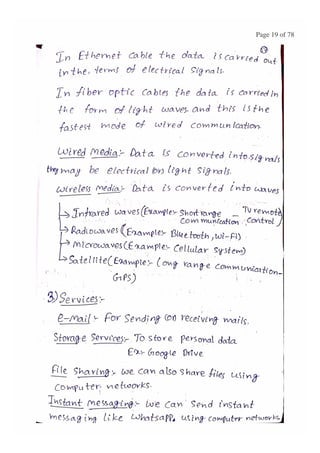 Page 19 of 78
In Ethernet cable the data is carried out
in the terms of electrical signals.
In fiber optic cables the data is carried in
the form of light waves and this is the
fastest mode of wired communication.
Wired media:- Data is converted into signals
they may be electrical on light signals.
Wireless media:- Data is converted into waves
Infrared waves (Example:- Short range communication - TV remote control)
Radiowaves (Example:- Bluetooth, Wi-Fi)
Microwaves (Example:- Cellular System)
Satellite (Example:- Long range communication-
GPS)
3) Services:-
E-mail:- For sending (or) receiving mails.
Storage Services:- To store personal data
Ex:- Google Drive
File Sharing:- we can also share files using
Computer networks.
Instant messaging:- we can send instant
messaging like Whatsapp, using computer networks.